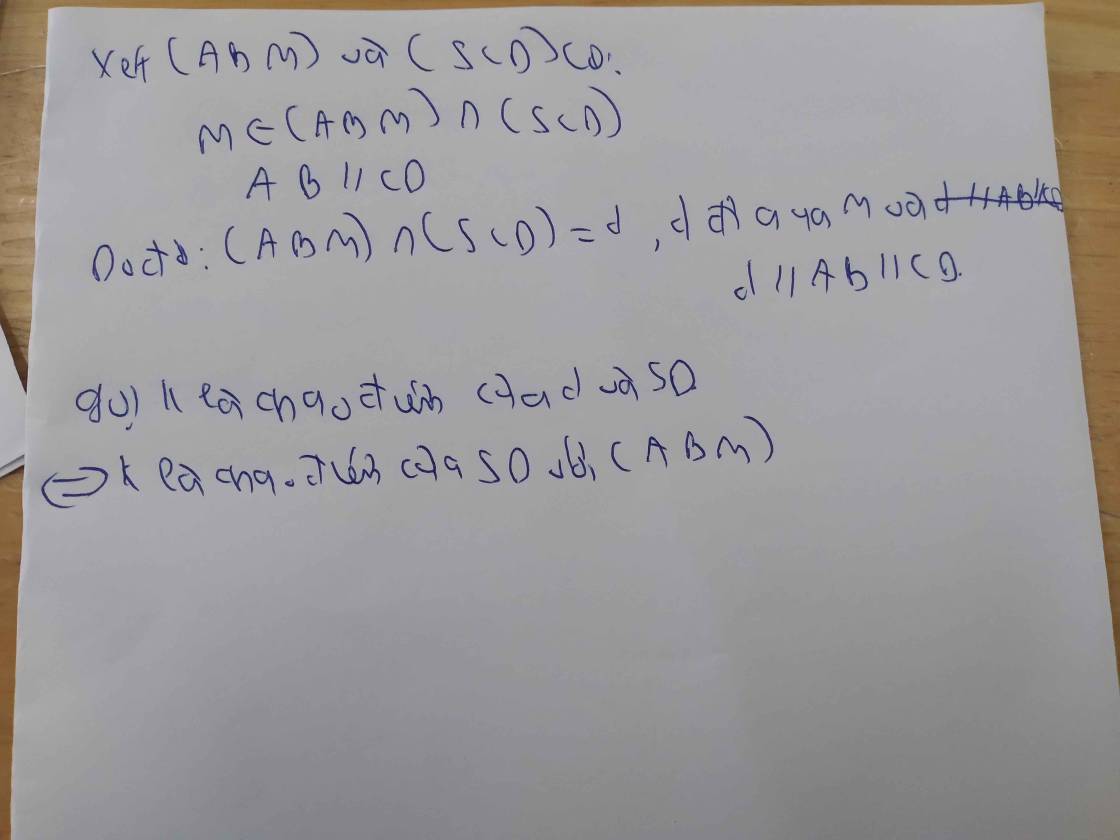 Xét (ABM) và (SCD) có:
M ∈ (ABM) ∩ (SCD)
AB // CD
Do đó: (ABM) ∩ (SCD) = d, d đi qua M và d // AB // CD
d // AB // CD.
gọi K là giao điểm của d và SD
⇔ K là giao điểm của SD với (ABM)